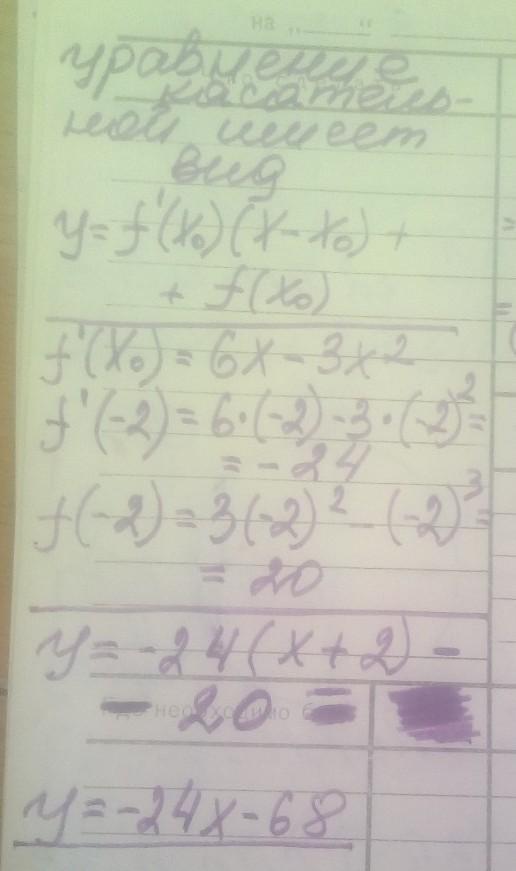 на „ “
уравнение
касатель-
ной имеет
вид
y = f'(x₀)(x - x₀) +
+ f(x₀)
f'(x₀) = 6x - 3x²
f'(-2) = 6·(-2) - 3·(-2)² =
= -24
f(-2) = 3(-2)² - (-2)³ =
= 20
y = -24(x + 2) -
- 20 =
необходимо
y = -24x - 68